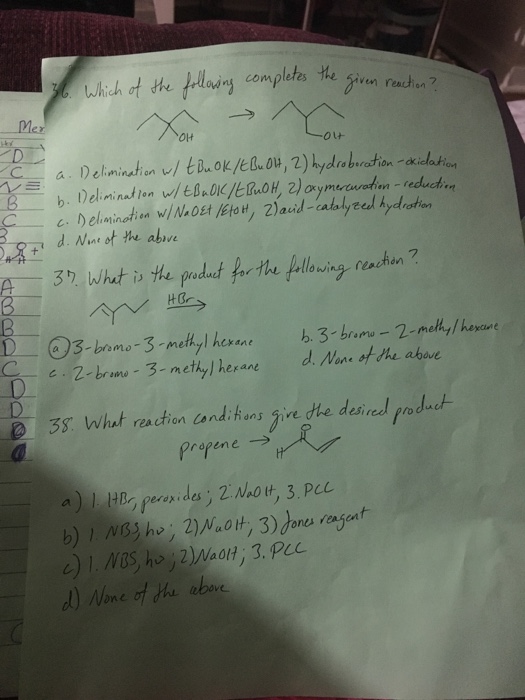 36. Which of the following completes the given reaction?
OH → OH
a. 1) elimination w/ tBuOK/tBuOH, 2) hydroboration-oxidation
b. 1) elimination w/ tBuOK/tBuOH, 2) oxymercuration-reduction
c. 1) elimination w/ NaOEt/EtOH, 2) acid-catalyzed hydration
d. None of the above
37. What is the product for the following reaction?
HBr
a) 3-bromo-3-methyl hexane
b. 3-bromo-2-methyl hexane
c. 2-bromo-3-methyl hexane
d. None of the above
38. What reaction conditions give the desired product
propene → O H
a) 1. HBr, peroxides; 2. NaOH, 3. PCC
b) 1. NBS, hυ; 2) NaOH; 3) Jones reagent
c) 1. NBS, hυ; 2) NaOH; 3. PCC
d) None of the above
Mer
D
C
B
C
A
B
B
D
C
D
D